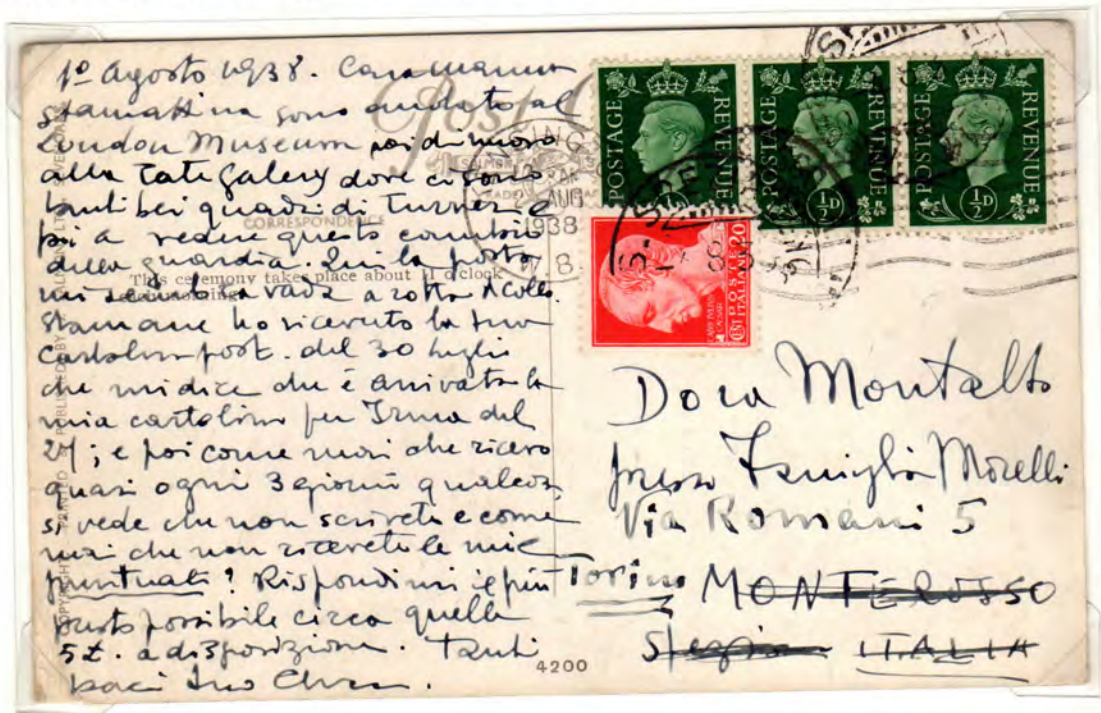 1º Agosto 1938. Cara Mamma
stamattina sono andato al
London Museum poi di nuovo
alla Tate Galery dove ci sono
tanti bei quadri di Turner e
poi a vedere questo cambio
della guardia. Qui la posta
mi sembra vada a rotta di collo.
Stamane ho ricevuto la tua
cartolina post. del 30 luglio
che mi dice che è arrivata la
mia cartolina per Irma del
; e poi come mai che ricevo
quasi ogni 3 giorni qualcosa,
si vede che non scrivete e come
mai che non ricevete le mie
puntuali? Rispondimi il più
presto possibile circa quelle
5£. a disposizione. Tanti
baci tuo
Post
CORRESPONDENCE
This ceremony takes place about 11 o'clock
each morning
4200
POSTAGE REVENUE
½D
POSTAGE REVENUE
½D
POSTAGE REVENUE
½D
AUG
1938
POSTE
ITALIANE
CENT 20
Dora Montalto
presso Famiglia Morelli
Via Romani 5
Torino MONTEROSSO
Spezia ITALIA